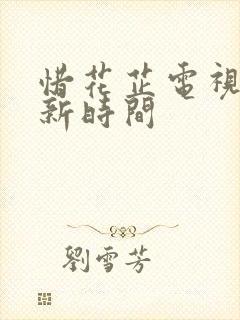 惜花芷電視
新時間
劉雪芳